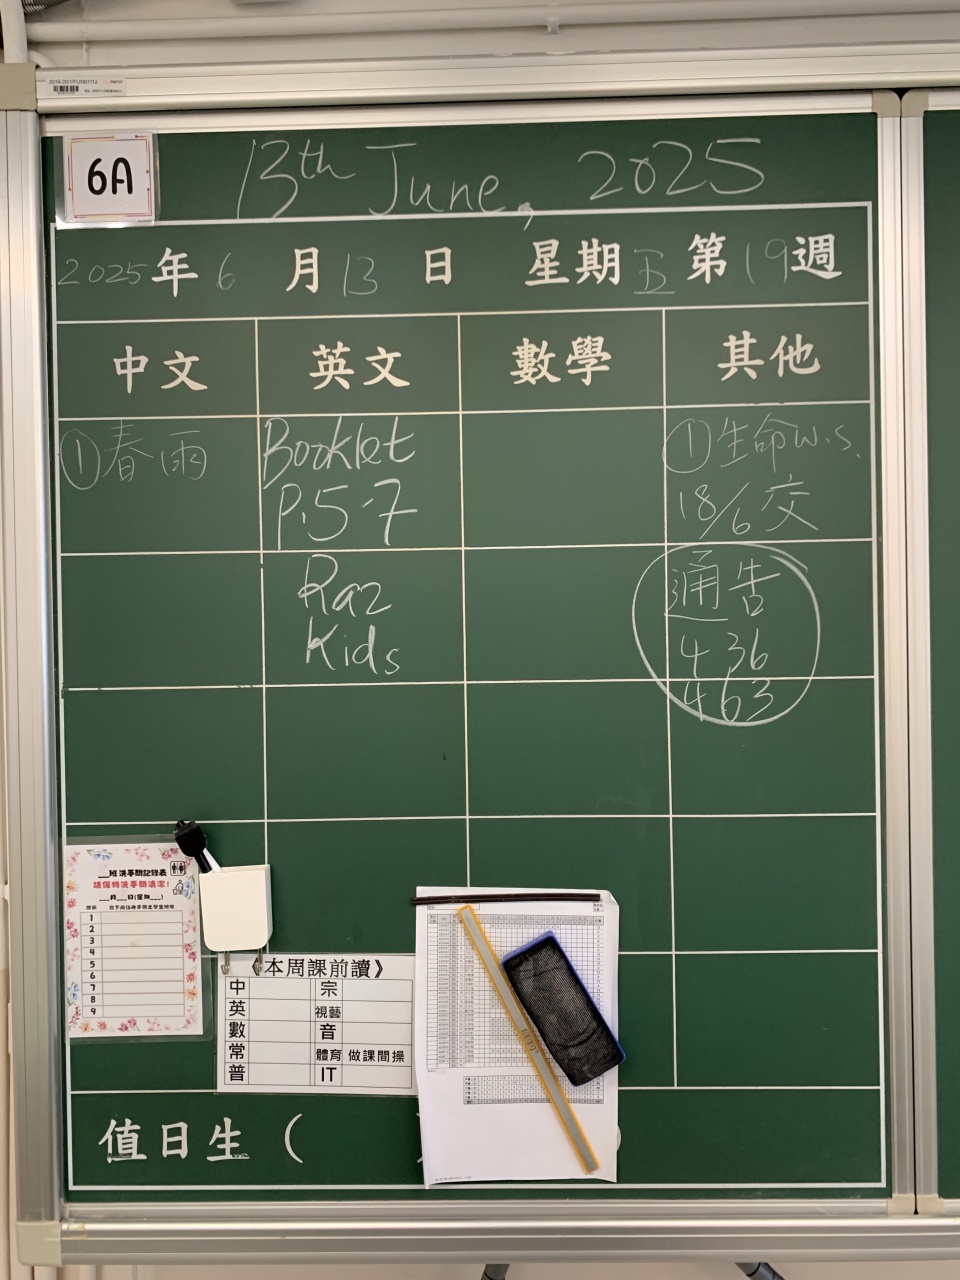 6A
13th June, 2025
2025年6月13日 星期五 第19週
中文 英文 數學 其他
①春雨
Booklet
P.5-7
①生命w.s.
18/6交
Raz
Kids
通告
436
463
班洗手間記錄表
請保持洗手間清潔!
月 日(星期 )
1
2
3
4
5
6
7
8
9
《本周課前讀》
中 宗
英 視藝
數 音
常 體育 做課間操
普 IT
值日生 (